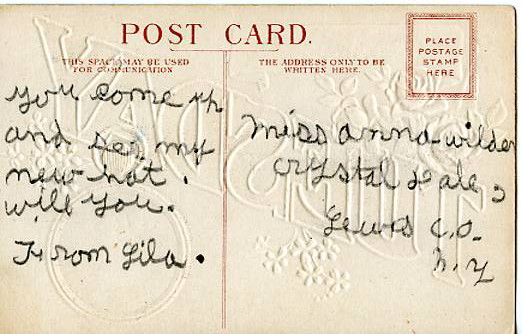 POST CARD.
THIS SPACE MAY BE USED
FOR COMMUNICATION
THE ADDRESS ONLY TO BE
WRITTEN HERE.
PLACE
POSTAGE
STAMP
HERE
you come up
and see my
new hat.
will you.
From Lila.
Miss anna wilder
Crystal Dale,
Lewis Co.
N. Y